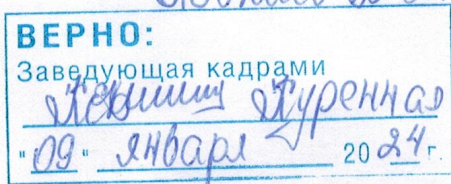 ВЕРНО:
Заведующая кадрами
Куренная
"09" января 2024 г.